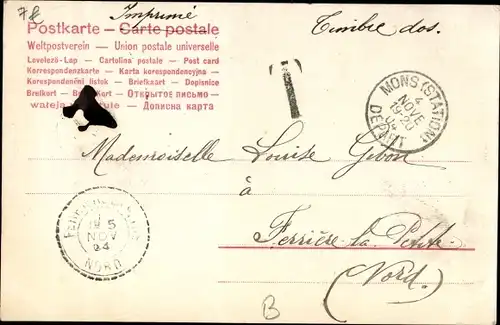 7f
Imprimé
Timbre dos.
Postkarte — Carte postale
Weltpostverein — Union postale universelle
Levelező-Lap — Cartolina postale — Post card
Korrespondenzkarte — Karta korespondencyjna —
Korespondenční lístek — Briefkaart — Dopisnice
Brefkort — Kort — Открытое письмо —
— Дописна карта
T
MONS (STATION)
4
NOVE
19-20
04
DEPART
Mademoiselle Louise Gibon
à
Ferrière la Petite
(Nord)
5
NOV
04
NORD
B